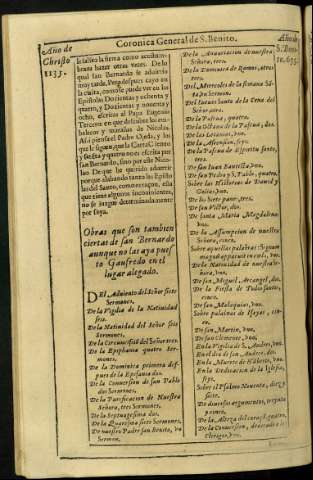 Coronica General de S. Benito.
Año de
Christo
1135.
Año de
S. Beni-
to. 655.
le falta la firma como acostum-
braua hazer otras vezes. De lo
qual san Bernardo se admirò
muy tarde, Pero despues cayo en
la cuẽta, como se puede ver en las
Epistolas Dozientas y ochenta y
quatro, y Dozientas y nouenta y
ocho, escritas al Papa Eugenio
Tercero en que descubre los em-
bustes y marañas de Nicolas.
Así piensa el Padre Ojeda, y los
que le siguen, que la Carta Ciento
y
no es escrita por
san Bernardo, sino por este Nico-
lao. De que ha querido aduertir
porque alabando tanto las Episto-
las del Santo, como es razon, esta
que tiene algunos inconuenientes,
no se juzgue determinadamente
por suya.
Obras que son tambien
ciertas de san Bernardo
aunque no las aya pues
to Gaufredo en el
lugar alegado.
DEl Aduiento del Señor siete
Sermones.
De la Vigilia de la Natiuidad
seis.
De la Natiuidad del Señor seis
Sermones.
De la Circuncisiõ del Señor tres.
De la Epiphania quatro Ser-
mones.
De la Dominica primera des-
pues de la Epifania dos.
De la Conuersion de san Pablo
dos Sermones.
De la Purificacion de Nuestra
Señora, tres Sermones.
De la Septuagesima dos.
De la Quaresma siete Sermones.
De nuestro Padre san Benito, vn
Sermon.
De la Anunciacion de nuestra
Señora, tres.
De la Dominica de Ramos, otros
tres.
Del Miercoles de la semana Sã-
ta vn Sermon.
Del Iueues Santo de la Cena del
Señor vno.
De la Pascua, quatro.
De la Octaua de la Pascua, dos.
De las Letanias, vno.
De la Ascension, seys.
De la Pascua de Espiritu santo,
tres.
De san Iuan Bautista, vno.
De san Pedro y S. Pablo, quatro.
Sobre las Historias de Dauid y
Golias, vno.
De los Siete panes, tres.
De san Victor, dos.
De Santa Maria Magdalena
vno.
De la Assumpcion de nuestra
Señora, cinco.
Sobre aquellas palabras Signum
magnũ apparuit in cœli, vno.
De la Natiuidad de nuestra Se-
ñora, vno.
De san Miguel Arcangel, dos.
De la Fiesta de Todos santos,
cinco.
De san Malaquias, vno.
Sobre palabras de Isayas, cin-
co.
De san Martin, vno.
De san Clemente, vno.
En la Vigilia de S. Andres, vno.
En el dia de san Andres, dos.
En la Muerte de Hũberto, vno.
En la Dedicacion de la Iglesia,
seys.
Sobre el Psalmo Nouenta, diez y
siete.
De diuersos argumentos, treynta
De la Alteza del coraçõ, quatro.
De la Conuersion,
Clerigos, vno.